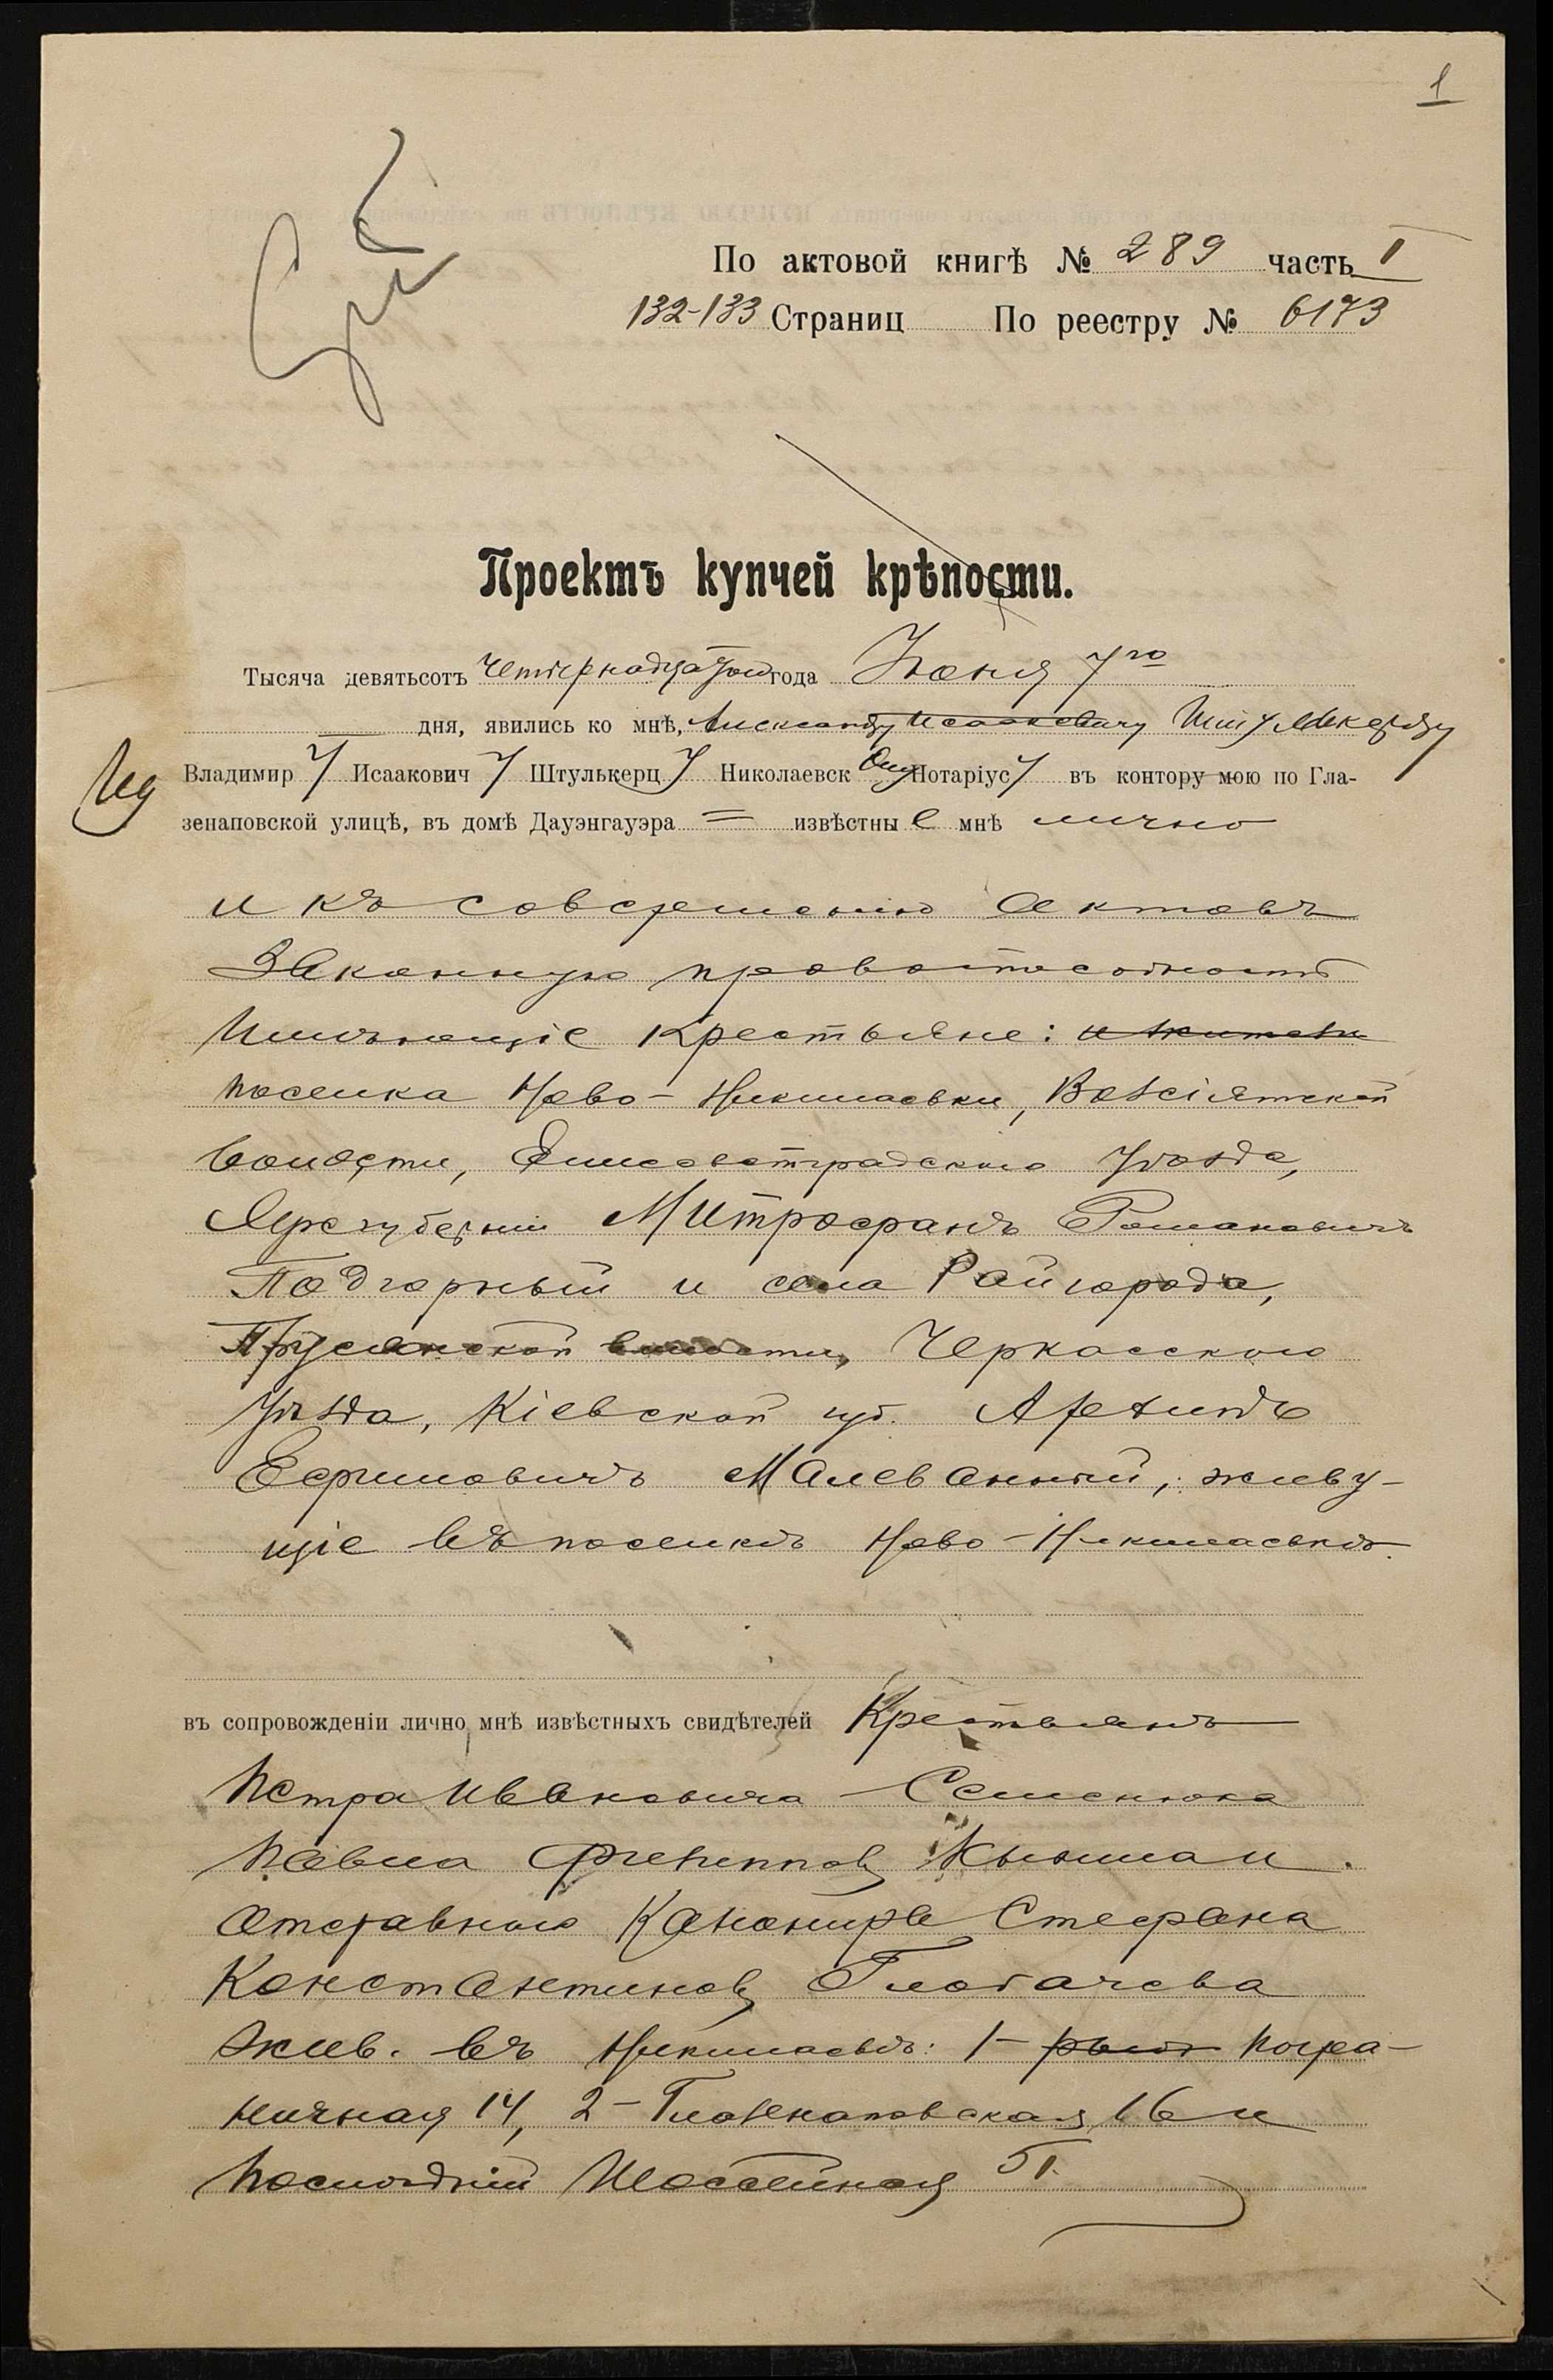 1
По актовой книгѣ № 289 часть I
132-133 Страниц По реестру № 6173
Проектъ купчей крѣпости.
Тысяча девятьсотъ четырнадцатого года Іюня 7го
дня, явились ко мнѣ, Александру Исааковичу
Владимиру Исааковичу Штулькерцу Николаевскому Нотаріусу въ контору мою по Гла-
зенаповской улицѣ, въ домѣ Дауэнгауэра = извѣстные мнѣ лично
и къ совершенію актовъ
законную правоспособность
имѣющіе крестьяне: и жители
поселка Ново-Николаевки, Возсіятской
волости, Елисаветградскаго уѣзда,
Херс губерніи Митрофанъ Романовичъ
Подгорный и села Райгорода,
Прусянской волости, Черкасскаго
уѣзда, Кіевской губ.
Ефимовичъ Малеванный, живу-
щіе въ поселкѣ Ново-Николаевкѣ.
въ сопровожденіи лично мнѣ извѣстныхъ свидѣтелей Крестьянъ
Петра Ивановича Семенюка
Павла
отставного Канонира Стефана
Константинов Глобачева
жив. въ Николаевѣ: 1- Погра-
ничная 14, 2- Глазенаповская 16 и
послѣдній Шоссейная 51.